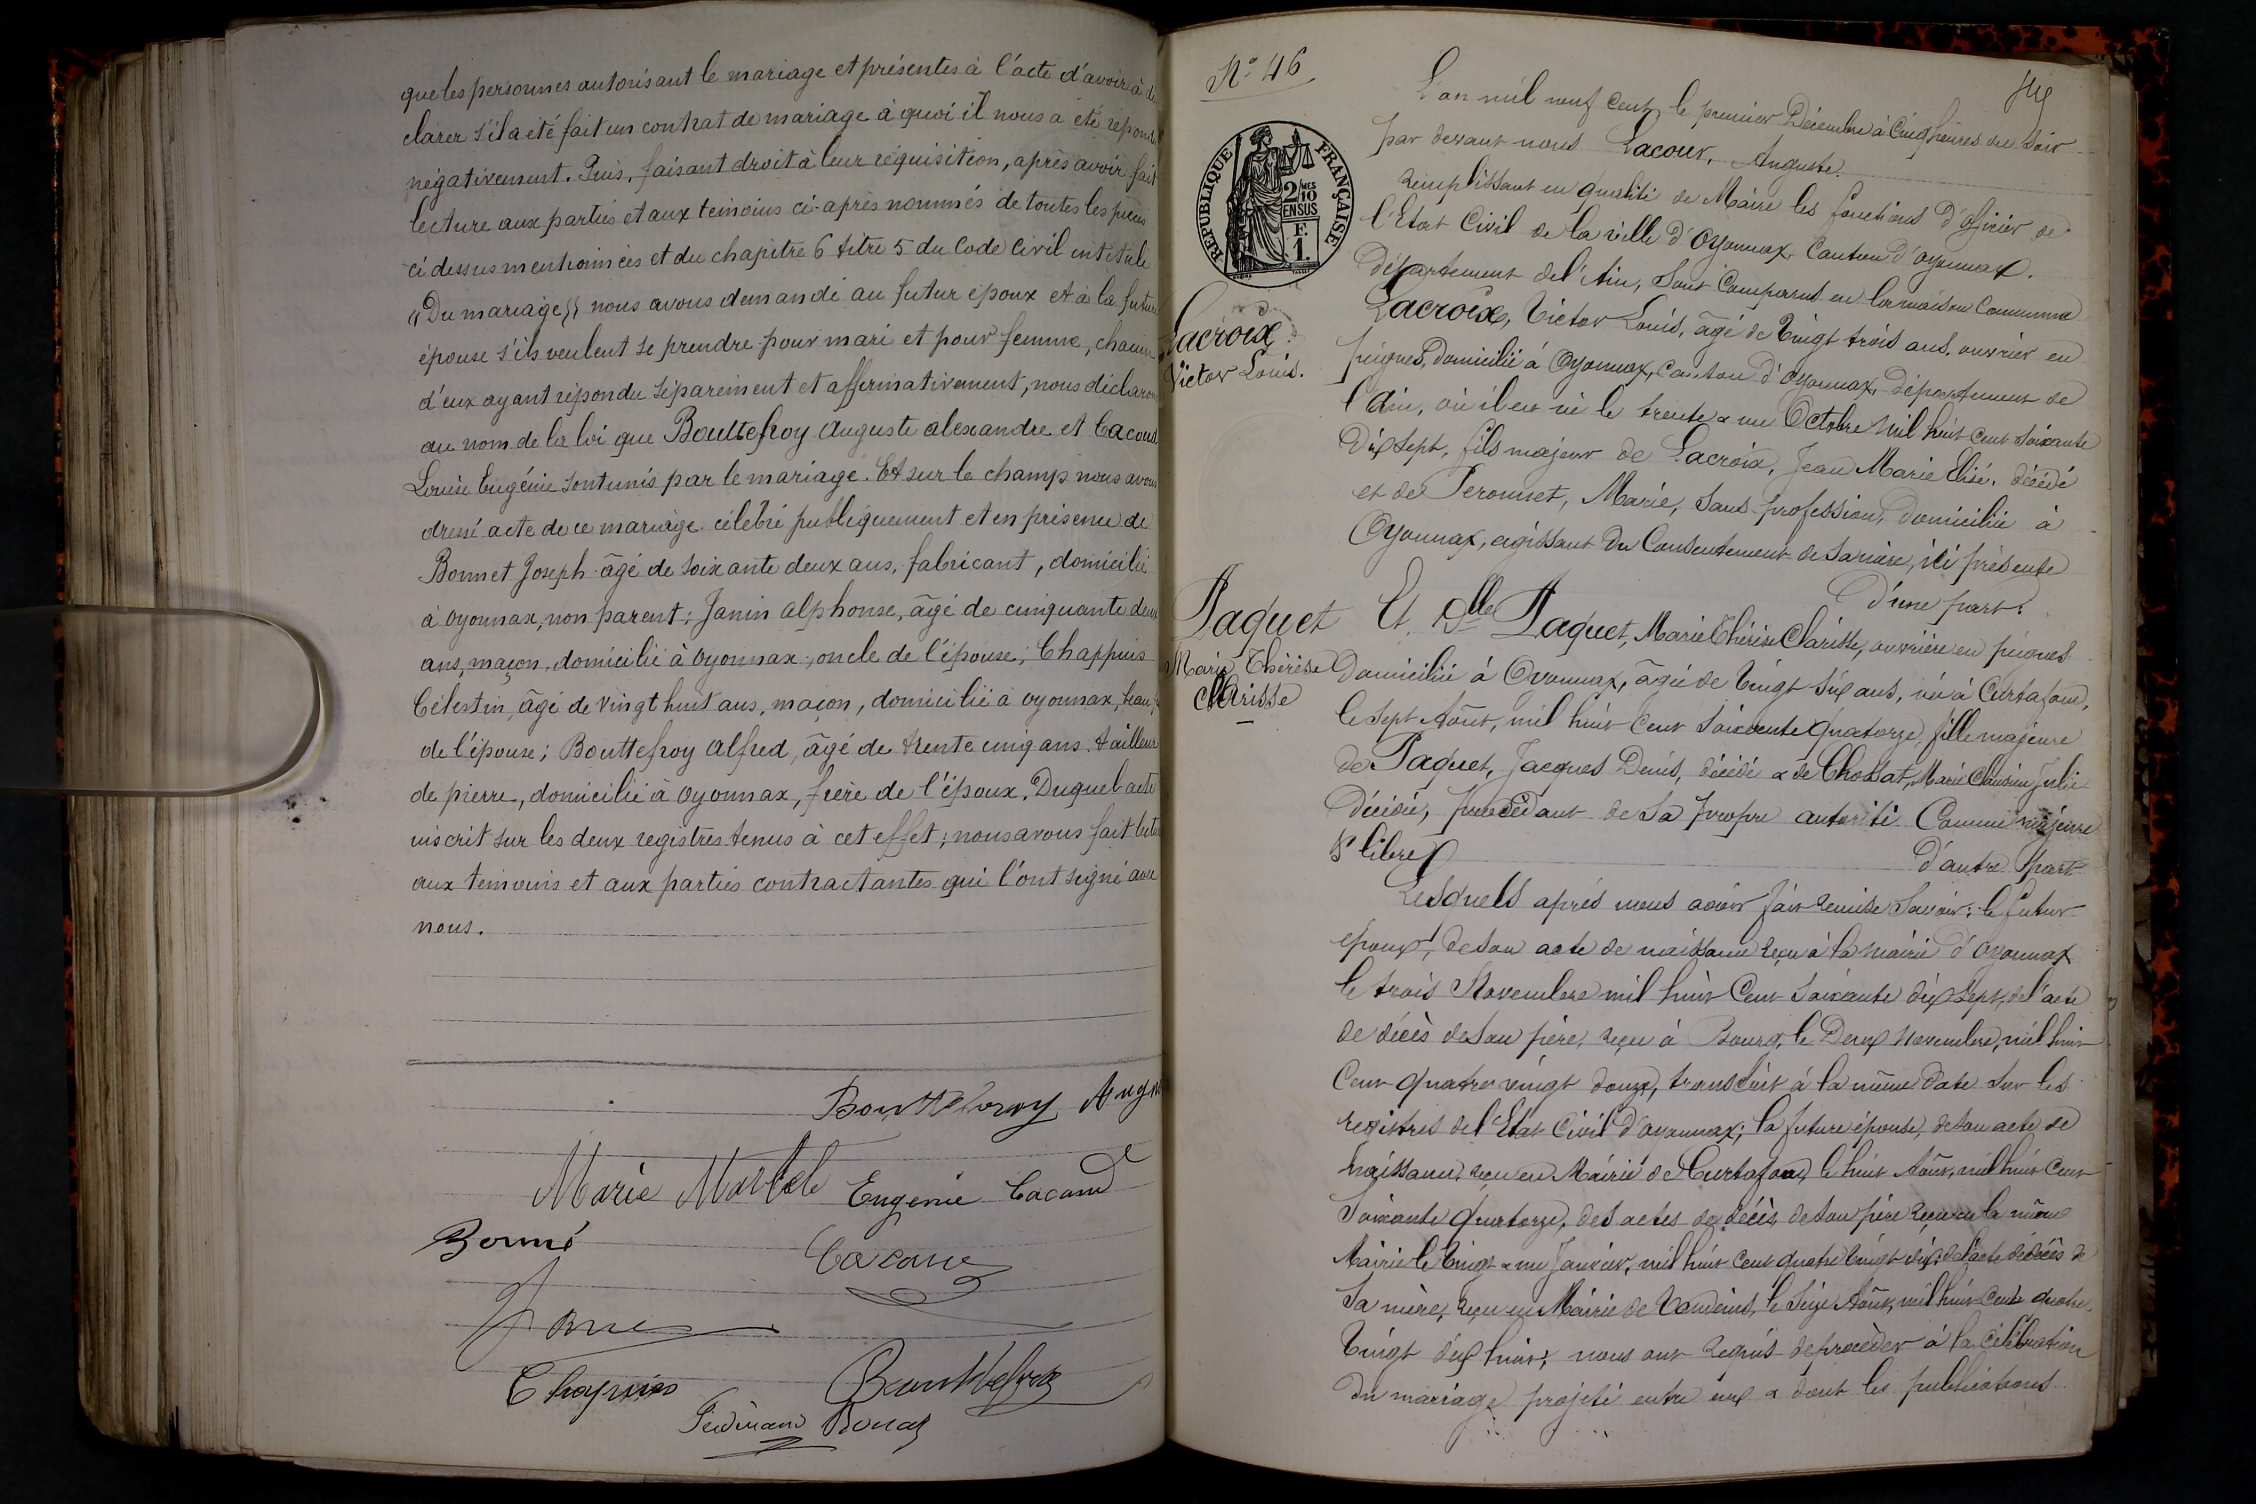 que les personnes autorisant le mariage et présentes à l'acte d'avoir à dé
clarer s'il a été fait un contrat de mariage à quoi il nous a été répondu
négativement. Puis, faisant droit à leur réquisition, après avoir fait
lecture aux parties et aux témoins ci-après nommés de toutes les pièces
ci dessus mentionnées et du chapitre 6 titre 5 du Code Civil intitulé
"Du mariage" nous avons demandé au futur époux et à la future
épouse s'ils veulent se prendre pour mari et pour femme, chacun
d'eux ayant répondu séparément et affirmativement, nous déclarons
au nom de la loi que Bouttefroy Auguste alexandre et Cacaud
Louise Eugénie sont unis par le mariage. Et sur le champ nous avons
dressé acte de ce mariage célébré publiquement et en présence de
Bonnet Joseph âgé de soixante deux ans, fabricant, domicilié
à Oyonnax, non parent; Janin alphonse, âgé de cinquante deux
ans, maçon, domicilié à Oyonnax, oncle de l'épouse; Chappuis
Célestin, âgé de vingt huit ans, maçon, domicilié à oyonnax, beau
de l'épouse; Bouttefroy alfred, âgé de trente cinq ans, tailleur
de pierre, domicilié à Oyonnax, frère de l'époux. Duquel acte
inscrit sur les deux registres tenus à cet effet; nous avons fait lecture
aux témoins et aux parties contractantes qui l'ont signé avec
nous.
Bouttefroy Aug
Marie Eugenie Cacaud
Chappuis Bouttefroy
N° 46
L'an mil neuf cent, le premier Décembre à Cinq heures du Soir
par devant nous Lacour, Auguste.
remplissant en qualité de Maire les fonctions d'officier de
l'Etat Civil de la ville d'Oyonnax, Canton d'oyonnax.
Département de l'Ain, Sont Comparus en la maison Commune
REPUBLIQUE FRANÇAISE
2/10MES
EN SUS
F.
1.
Lacroix
Victor Louis.
Lacroix, Victor Louis, âgé de Vingt trois ans, ouvrier en
peignes, Domicilié à Oyonnax, canton d'Oyonnax, Département de
l'Ain, où il est né le trente & un Octobre Mil huit cent soixante
Dix sept, fils majeur de Lacroix, Jean Marie Elisé, décédé
et de Peronnet, Marie, Sans profession, Domiciliée à
Oyonnax, agissant du Consentement de sa mère, ici présente
D'une part.
Paquet
Marie Thérèse
Clarisse
Et Dlle Paquet, Marie Thérèse Clarisse, ouvrière en peignes
Domiciliée à Oyonnax, âgée de Vingt Six ans, née à Curtafond,
le Sept Août, mil huit Cent Soixante Quatorze, fille majeure
de Paquet, Jacques Denis, décédé & de Chossat, Marie Claudine Julie
Décédée, procédant de Sa propre autorité Comme majeure
& libre d'autre part
Lesquels après nous avoir fait remise Savoir: le futur
époux, de son acte de naissance reçu à la Mairie d'Oyonnax
le trois Novembre mil huit Cent Soixante dix sept, de l'acte
de décès de Son père, reçu à Bourg, le Deux Novembre, mil huit
Cent quatre vingt douze, transcrit à la même date sur les
registres de l'Etat Civil d'oyonnax; la future épouse, de son acte de
naissance, reçu en Mairie de Curtafond, le huit Août, mil huit Cent
Soixante Quatorze, des actes de décès de Son père reçu en la même
Mairie le Vingt & un Janvier, mil huit Cent quatre Vingt dix, de l'acte de décès de
Sa mère, reçu en Mairie de Vandeins, le Seize Août, mil huit Cent quatre
Vingt dix huit; nous ont requis de procéder à la célébration
du mariage projeté entre eux & dont les publications